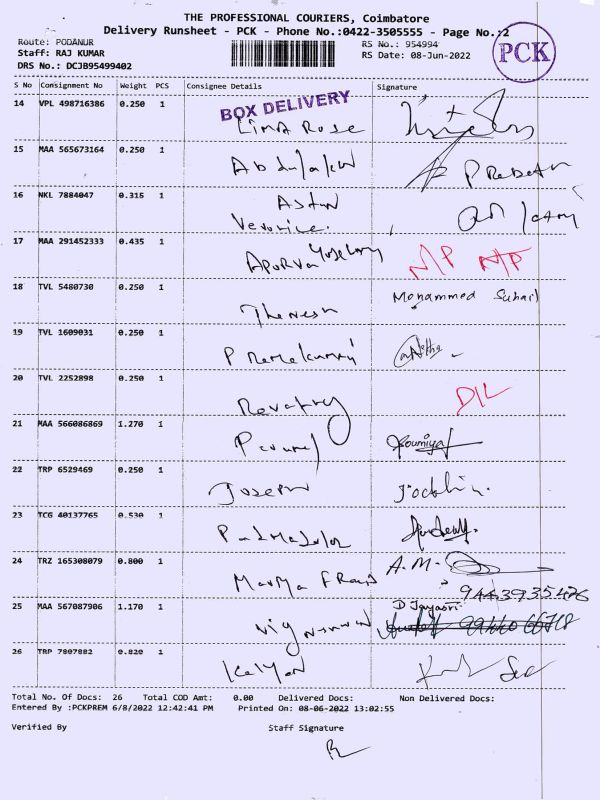 THE PROFESSIONAL COURIERS, Coimbatore
Delivery Runsheet - PCK - Phone No.:0422-3505555 - Page No.:2
Route: PODANUR
RS No.: 954994
Staff: RAJ KUMAR
RS Date: 08-Jun-2022
DRS No.: DCJB95499402
PCK
S No Consignment No Weight PCS Consignee Details Signature
BOX DELIVERY
14 VPL 498716386 0.250 1 Lima Rose
15 MAA 565673164 0.250 1
16 NKL 7884047 0.315 1
17 MAA 291452333 0.435 1 Aporva N/P N/P
18 TVL 5480730 0.250 1 Mohammed Suhail
19 TVL 1609031 0.250 1
20 TVL 2252898 0.250 1 D/L
21 MAA 566086869 1.270 1 Sowmiya
22 TRP 6529469 0.250 1 Joseph
23 TCG 40137765 0.530 1
24 TRZ 165308079 0.800 1 A.M.
9443935426
25 MAA 567087906 1.170 1 D Jayasri
26 TRP 7807882 0.820 1 Kalyan
Total No. Of Docs: 26 Total COD Amt: 0.00 Delivered Docs: Non Delivered Docs:
Entered By :PCKPREM 6/8/2022 12:42:41 PM Printed On: 08-06-2022 13:02:55
Verified By Staff Signature